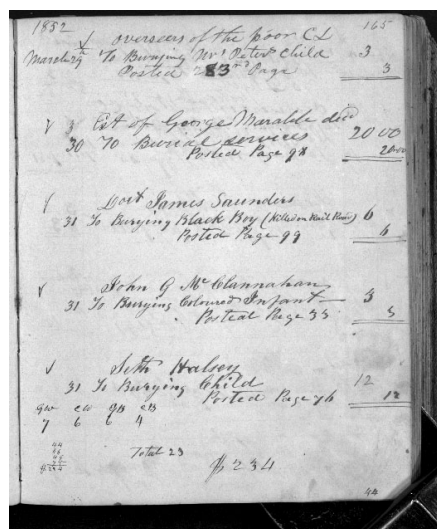 1852 165
overseers of the poor CL
March 29 To Burying Mrs Peters Child 3
Posted 283rd Page 3
Est of George Marable decd
30 To Burial services 20 00
Posted Page 98 20 00
Doct James Saunders
31 To Burying Black Boy (Killed on Rail Road) 6
Posted Page 99 6
John G McClannahan
31 To Burying Coloured Infant 3
Posted Page 33 3
Seth Halsey
31 To Burying Child 12
Posted Page 76 12
GW CW GB CB
7 6 6 4
Total 23
$234
44